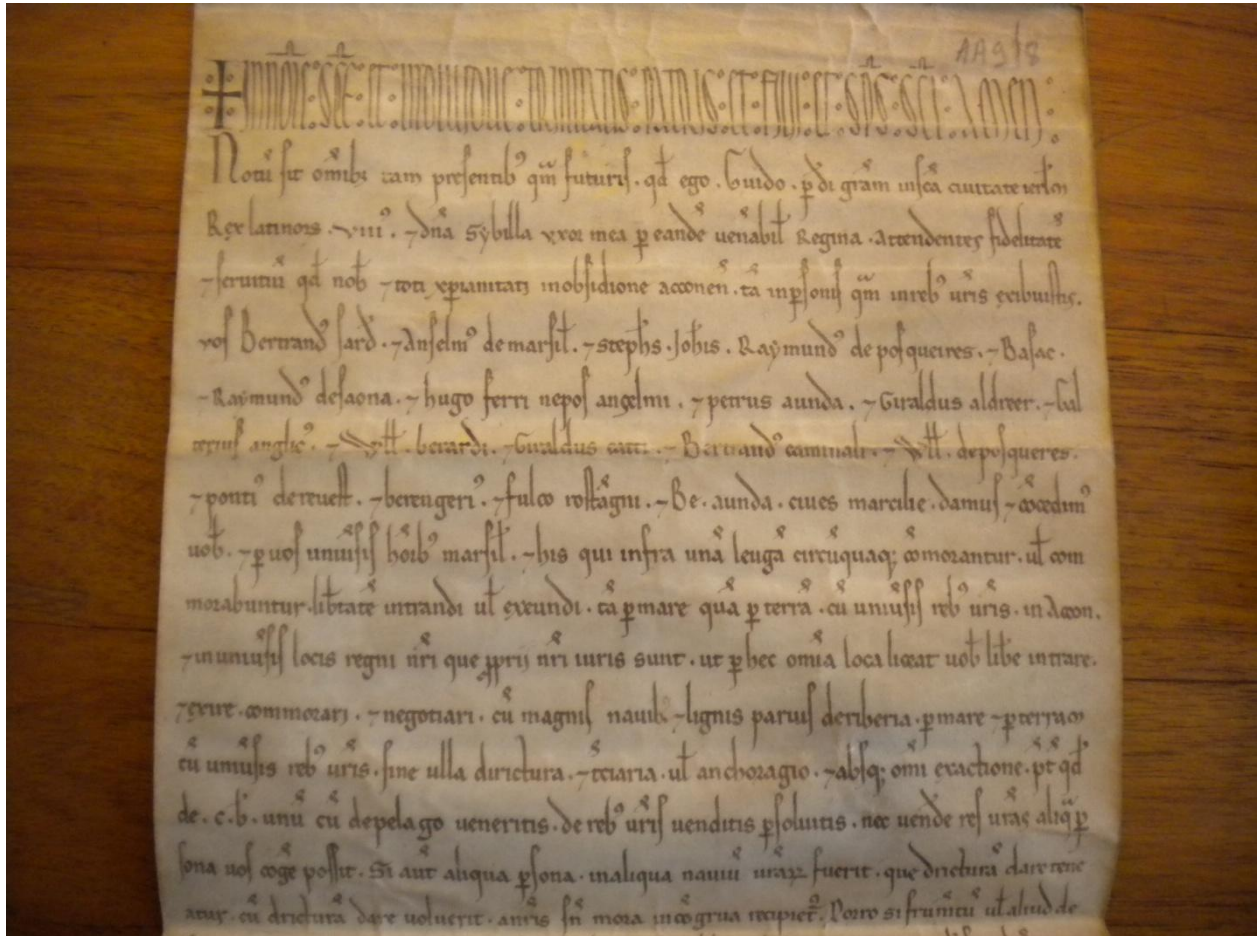 AA9/8
+ In nōīe · scē · et · indiuidue · trinitatis · patris · et · filii · et · sp̄s · sc̄i · amen :
Notū sit om̄ibꝫ tam presentib⁹ qm̄ futuris · qd̄ ego · Guido · p̱ dī gr̄am in sc̄a ciuitate ierl̄m
Rex latinoꝝ · viii⁹ · ⁊ dn̄a Sybilla uxor mea p̱ eandē uen̄abil̄ Regina · attendentes fidelitatē
⁊ seruitiū qd̄ nob̄ ⁊ toti xp̄ianitati in obsidione acconen̄ · tā in p̱sonis qm̄ in reb⁹ ur̄is exibuistis ·
uos Bertrand⁹ sard̄ · ⁊ Anselm⁹ de marsil̄ · ⁊ steph̄s · Joh̄is · Raymund⁹ de posqueires · ⁊ Basac ·
⁊ Raymund⁹ de saona · ⁊ hugo ferri nepos anselmi · ⁊ petrus aunda · ⁊ Giraldus aldreer · ⁊ Gal
terius anglic⁹ · ⁊ Wll̄ · berardi · ⁊ Giraldus catti · ⁊ Bertrand⁹ caminali · ⁊ Wll̄ · de posqueres ·
⁊ ponti⁹ de reuest · ⁊ berengeri⁹ · ⁊ fulco rostāgni · ⁊ Be · aunda · ciues marcilie · damus ⁊ c̄ocedim⁹
uob̄ · ⁊ p̱ uos uniūsis hōib⁹ marsil̄ · ⁊ his qui infra unā leugā circūquaqꝫ c̄omorantur · ul̄ com
morabuntur · lib̄tatē intrandi ul̄ exeundi · tā p̱ mare quā p̱ terrā · cū uniūsis reb⁹ ur̄is · in Accon ·
⁊ in uniūsis locis regni nr̄i que p̱prij nr̄i iuris sunt · ut p̱ hec om̄ia loca liceat uob̄ lib̄e intrare ·
⁊ exire · commorari · ⁊ negotiari · cū magnis nauibꝫ ⁊ lignis paruis de riberia · p̱ mare ⁊ p̱ terram
cū uniūsis reb⁹ ur̄is · sine ulla dirictura · ⁊ t̄ciaria · ul̄ anchoragio · ⁊ absqꝫ om̄i exactione · p̄t̄ qd̄
de · c · b̄ · unū cū de pelago ueneritis · de reb⁹ ur̄is uenditis p̱soluitis · nec uend̄e res ur̄as aliq̄ p̱
sona uos coḡe possit · Si aut̄ aliqua p̱sona · in aliqua nauiū ur̄aꝝ fuerit · que dricturā dare tene
atur · cū dricturā dare uoluerit · a nr̄is sn̄ mora incōgrua recipiet̄ · Porro si frum̄tū ul̄ aliud de